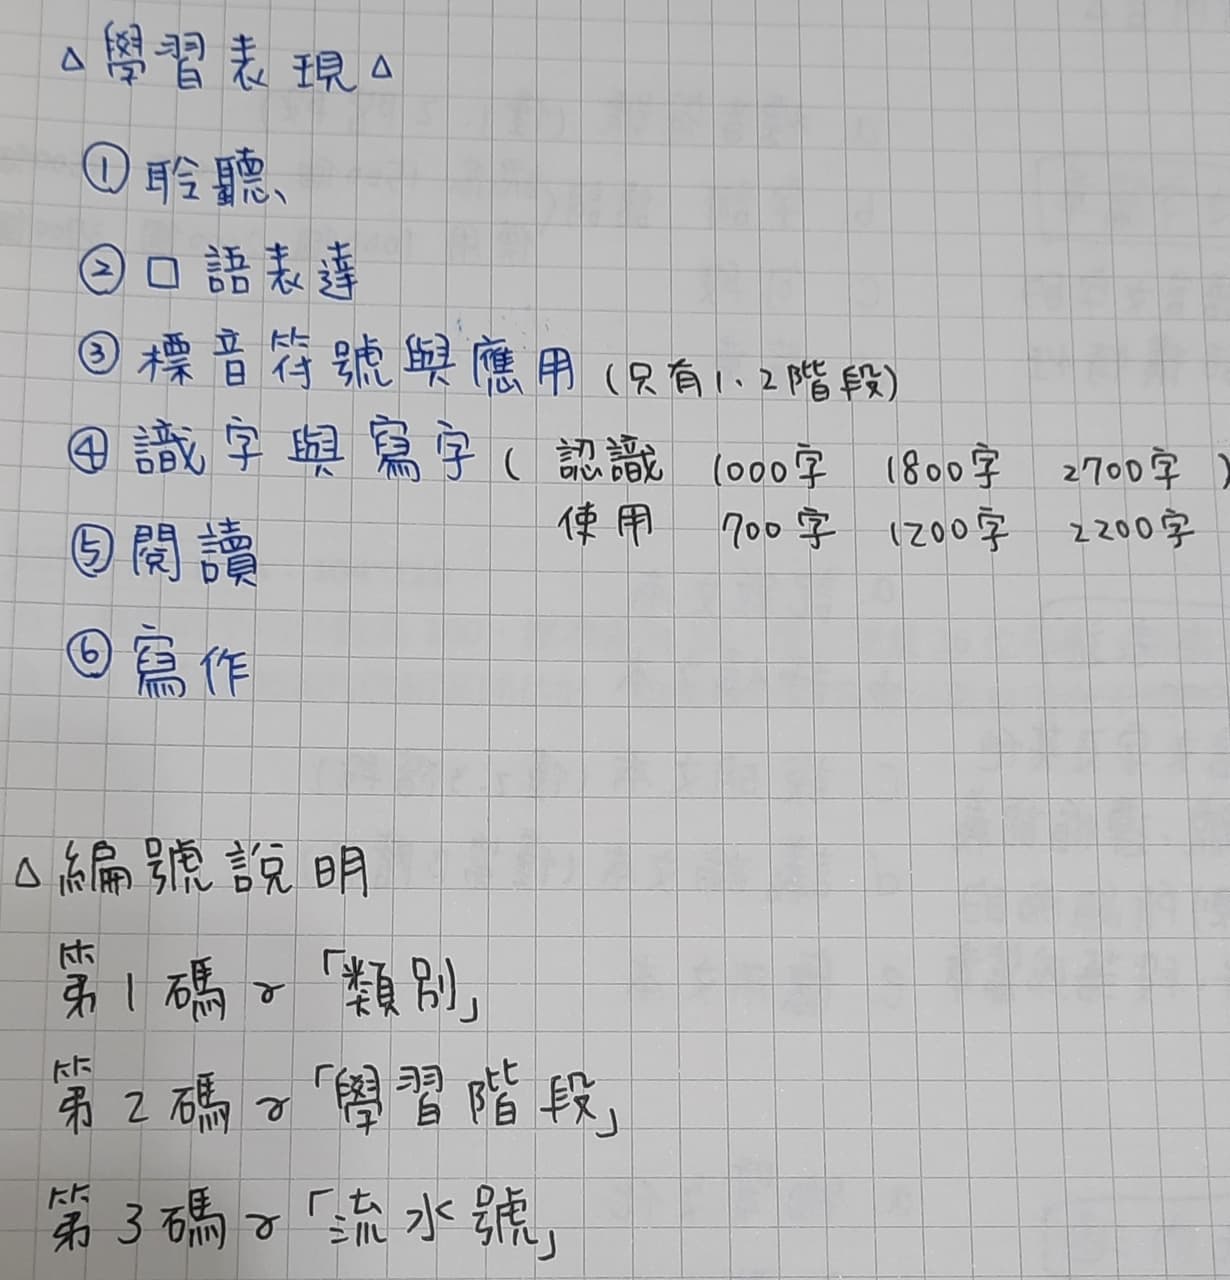 △學習表現△
①聆聽、
②口語表達
③標音符號與應用(只有1、2階段)
④識字與寫字( 認識 1000字 1800字 2700字 )
使用 700字 1200字 2200字
⑤閱讀
⑥寫作
△編號說明
第1碼~「類別」
第2碼~「學習階段」
第3碼~「流水號」